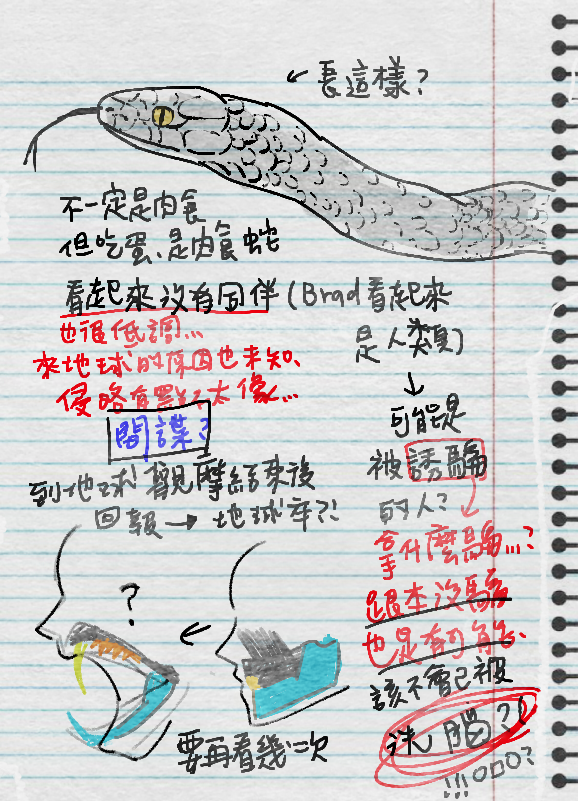 ← 長這樣?
不一定是肉食
但吃蛋、是肉食蛇
看起來沒有同伴(Brad看起來
是人類)
也很低調...
來地球的原因也未知、
侵略有點不太像...
間諜?
到地球觀摩結束後
回報→地球卒?!
↓
可能是
被誘騙
的人?
拿什麼騙...?
跟本沒騙
也是有可能、
該不會已被
洗腦?!
!!!口口口?
?
←
要再看幾次